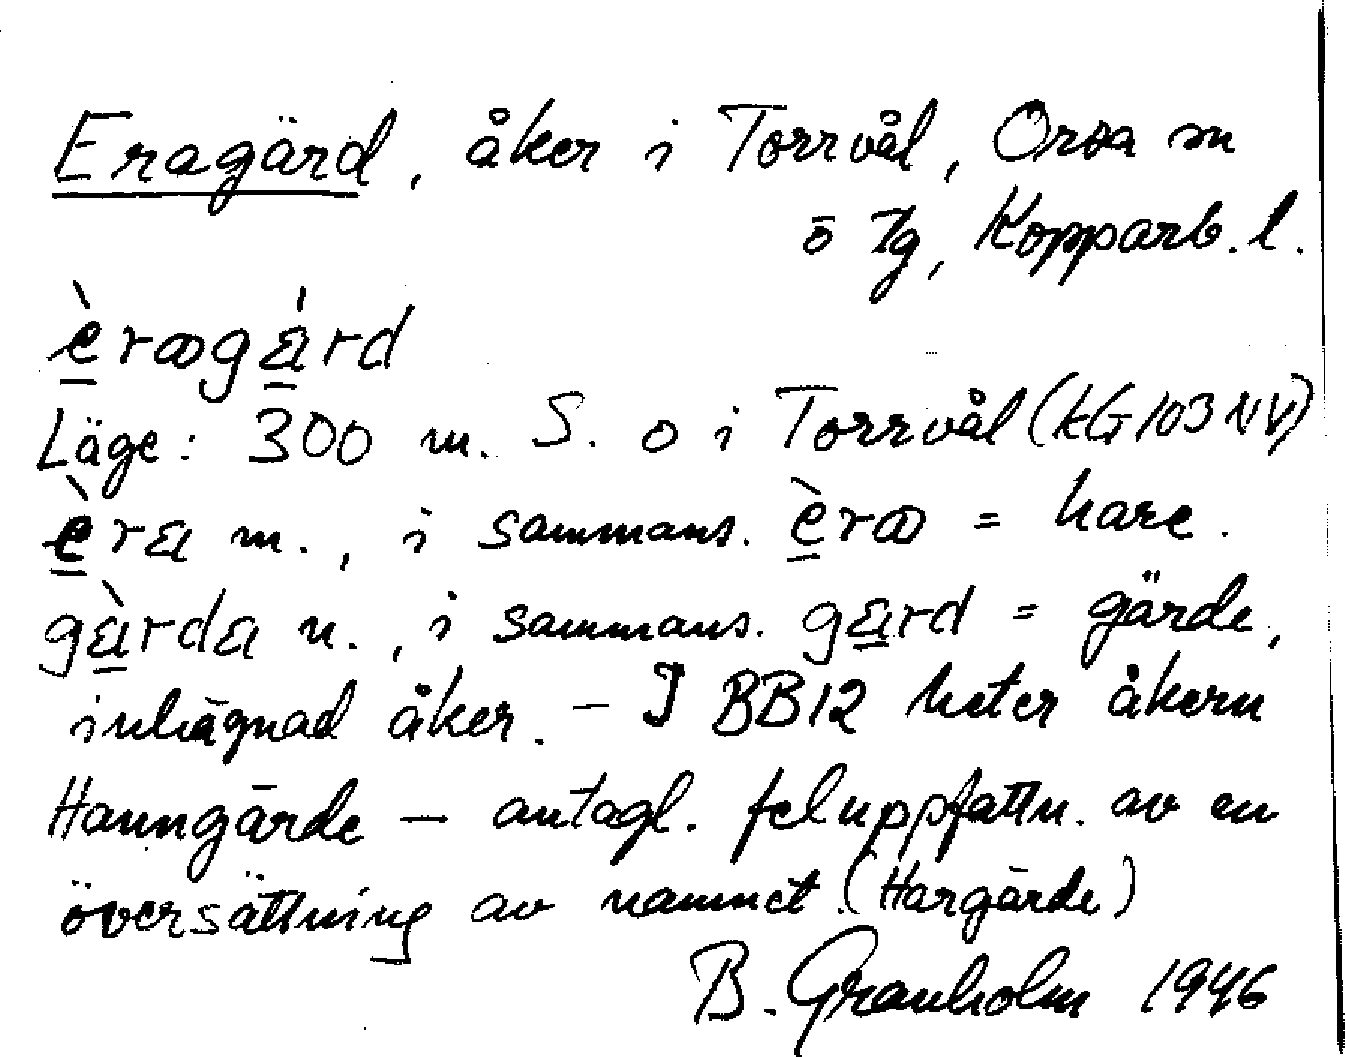 Eragärd, åker i Torrvål, Orsa sn
o tg, Kopparb. l.
èrαgá̱rd
Läge: 300 m. S. o i Torrvål (kG 103 NV)
èra m., i sammans. èrα = hare.
gàrda n., i sammans. gard = gärde,
inhägnad åker. – I BB12 heter åkern
Hanngärde – antagl. feluppfattn. av en
översättning av namnet. (Hargärde)
B. Granholm 1946